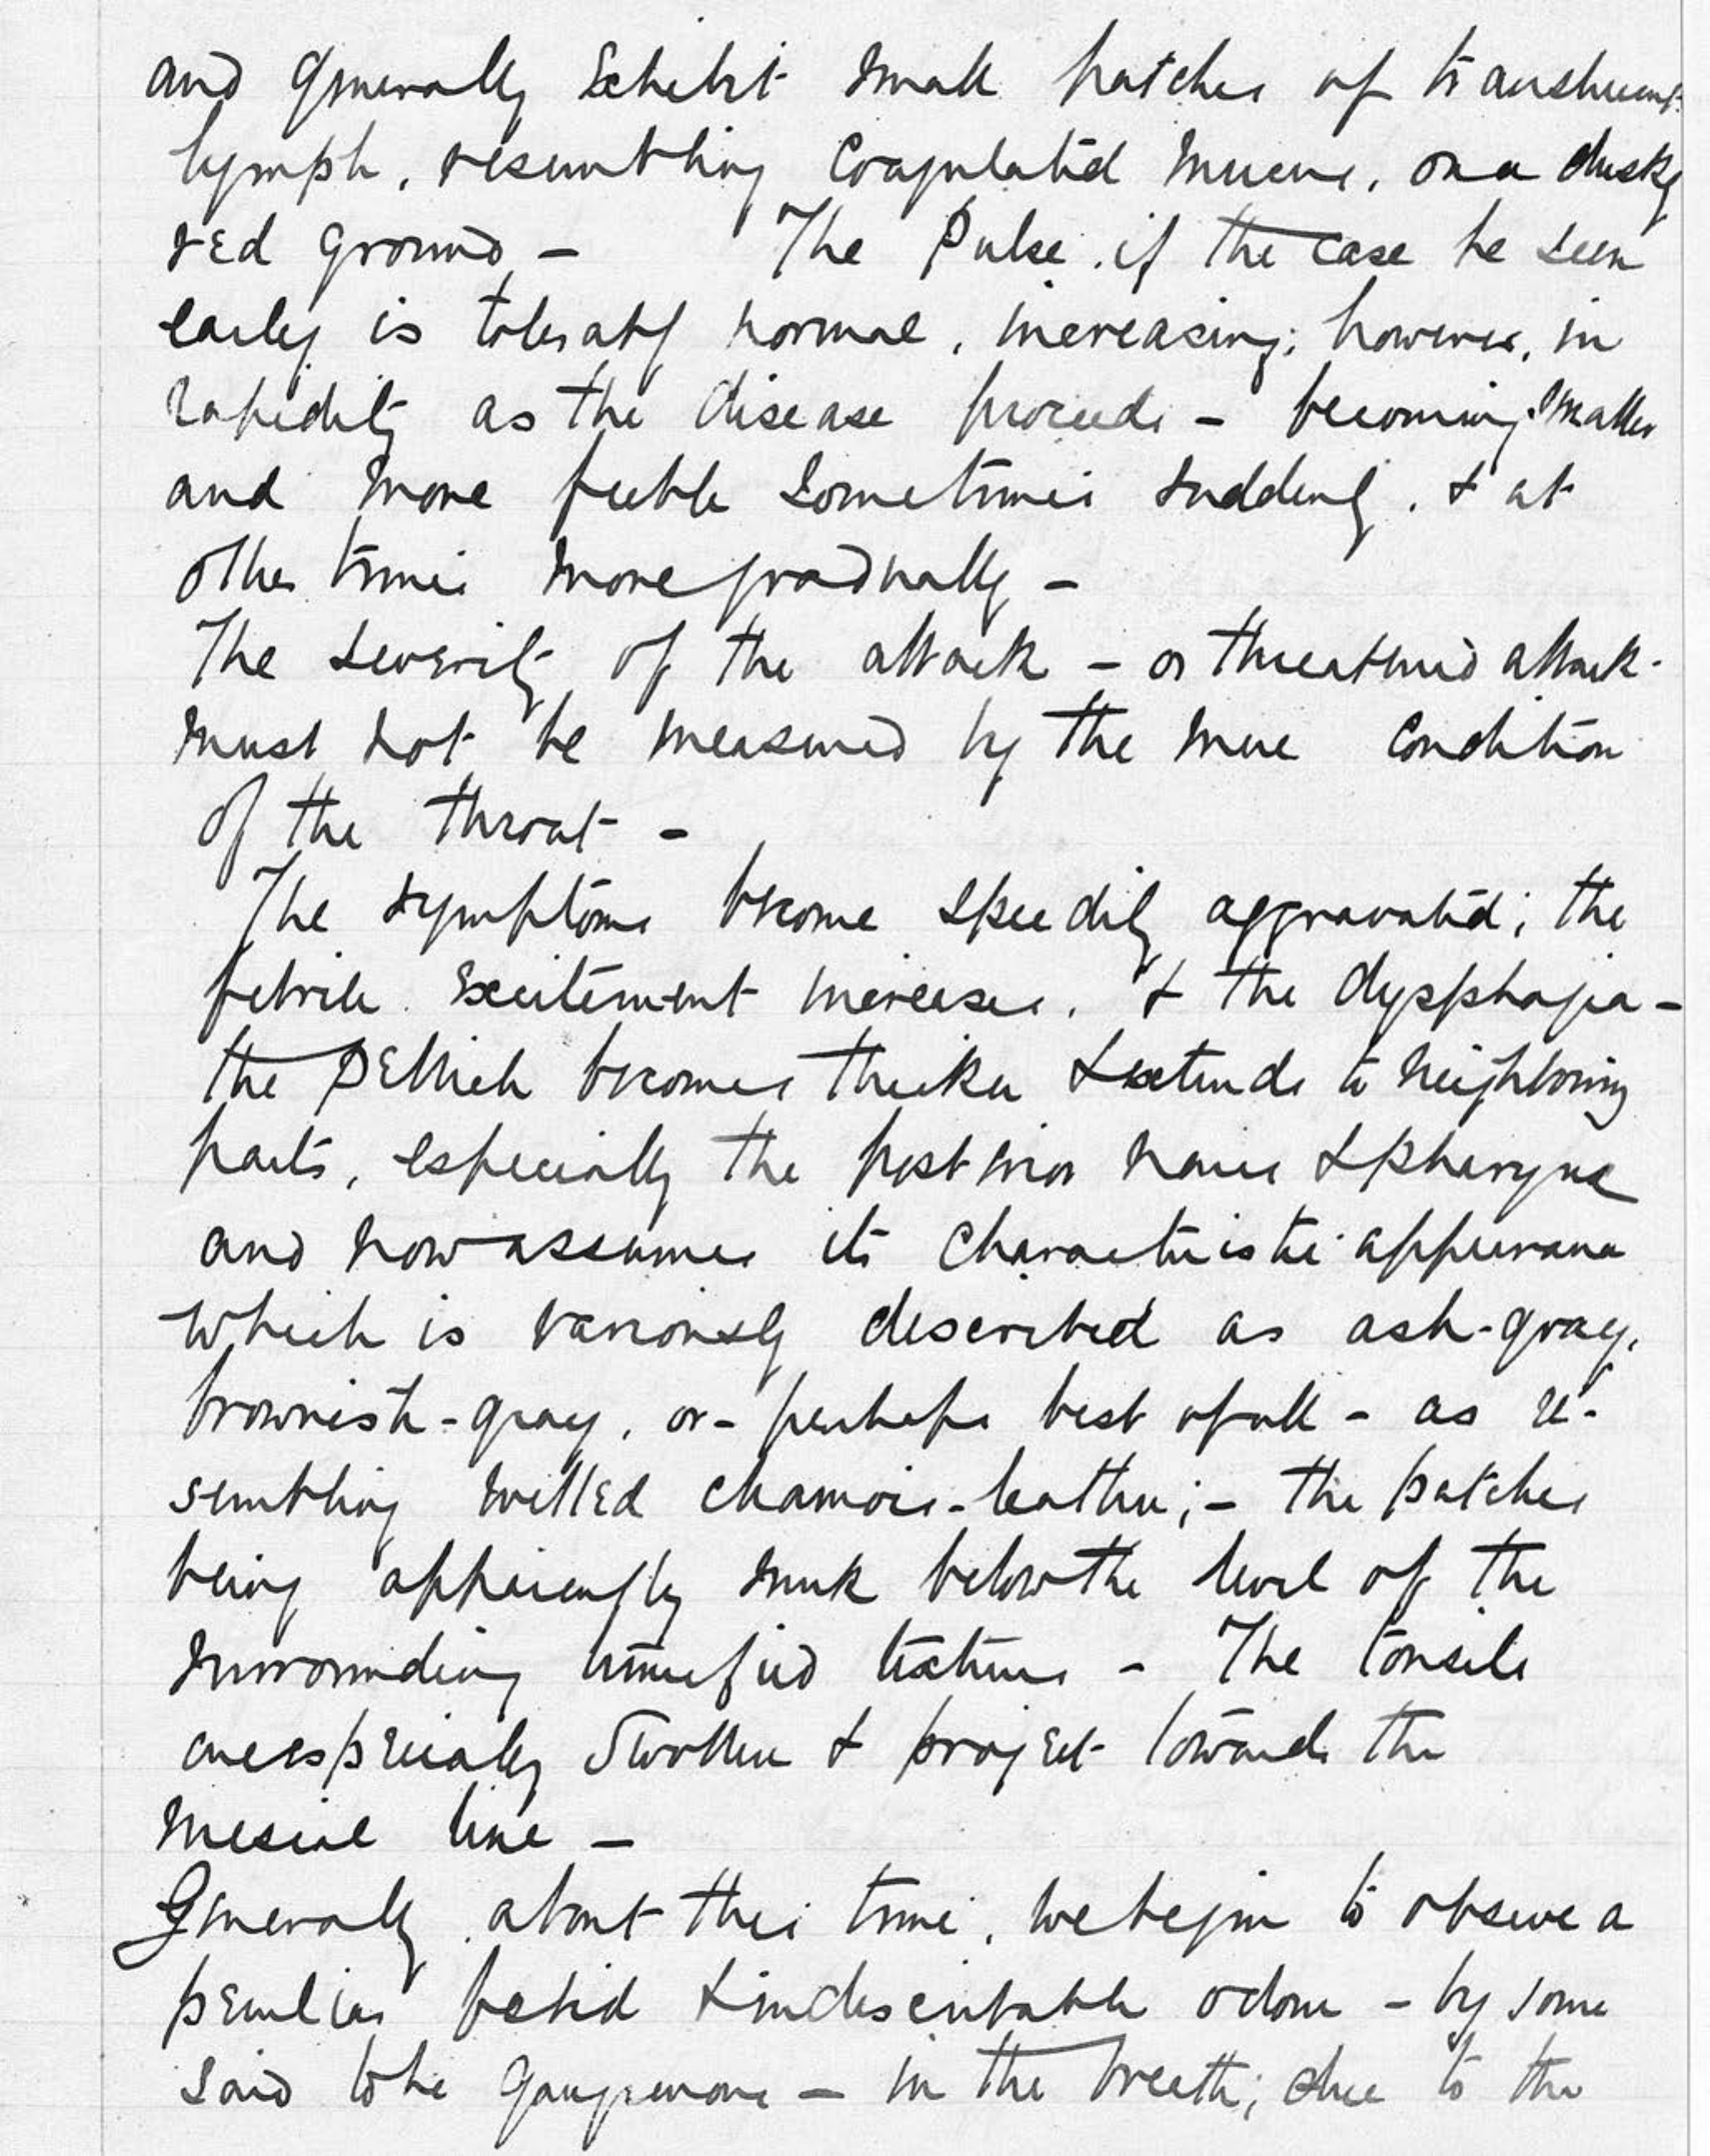 and generally Exhibit small patches of translucent
lymph, resembling Coagulated Mucus, on a dusky
red ground, – The Pulse, if the case be seen
early is tolerably normal, increasing, however, in
rapidity as the disease proceeds – becoming smaller
and more feeble sometimes suddenly, & at
other times more gradually –
The severity of the attack – or threatened attack -
must not be measured by the mere Condition
of the throat –
The symptoms become speedily aggravated; the
febrile Excitement increases, & the dysphagia –
the Pellicle becomes thicker & extends to neighboring
parts, especially the posterior nares & Pharynx
and now assumes its Characteristic appearance
which is variously described as ash-gray,
brownish-gray, or – perhaps best of all – as re-
sembling wetted chamois-leather; – the patches
being apparently sunk below the level of the
surrounding tumefied texture – The tonsils
are especially Swollen & project towards the
Mesial line –
Generally, about this time, we begin to observe a
peculiar fetid & indescribable odour – by some
said to be gangrenous – in the breath; due to the